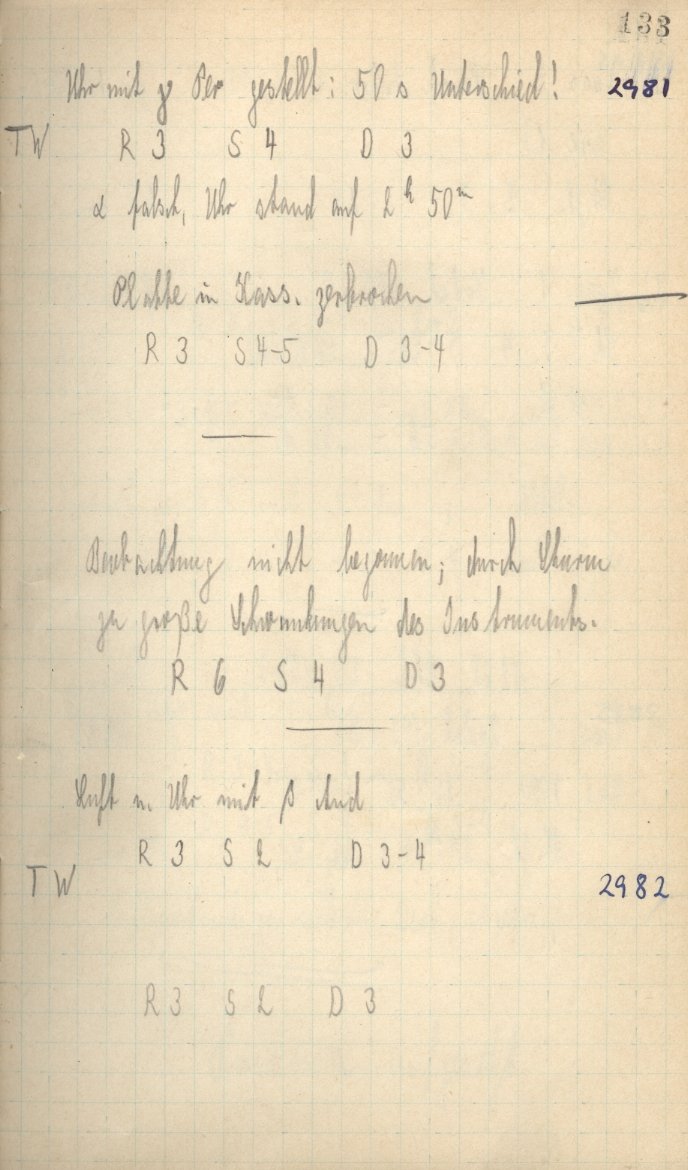 133
Uhr mit γ Per gestellt: 50 s Unterschied! 2981
TW R 3 S 4 D 3
α falsch, Uhr stand auf 2h 50m
Platte in Kass. zerbrochen
R 3 S 4-5 D 3-4
Beobachtung nicht begonnen; durch Sturm
zu große Schwankungen des Instruments.
R 6 S 4 D 3
Luft u. Uhr mit β And
R 3 S 2 D 3-4
TW 2982
R 3 S 2 D 3